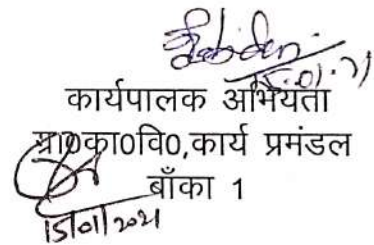 15.01.21
कार्यपालक अभियंता
ग्रा0का0वि0,कार्य प्रमंडल
बाँका 1
15/01/2021